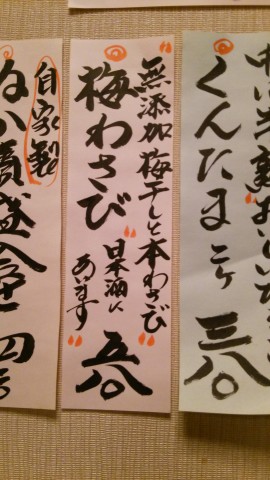 くんたまこヶ
三八〇
無添加梅干しと本わさび
梅わさび
日本酒に
あいます
五八〇
自家製
ぬか漬盛合せ
四